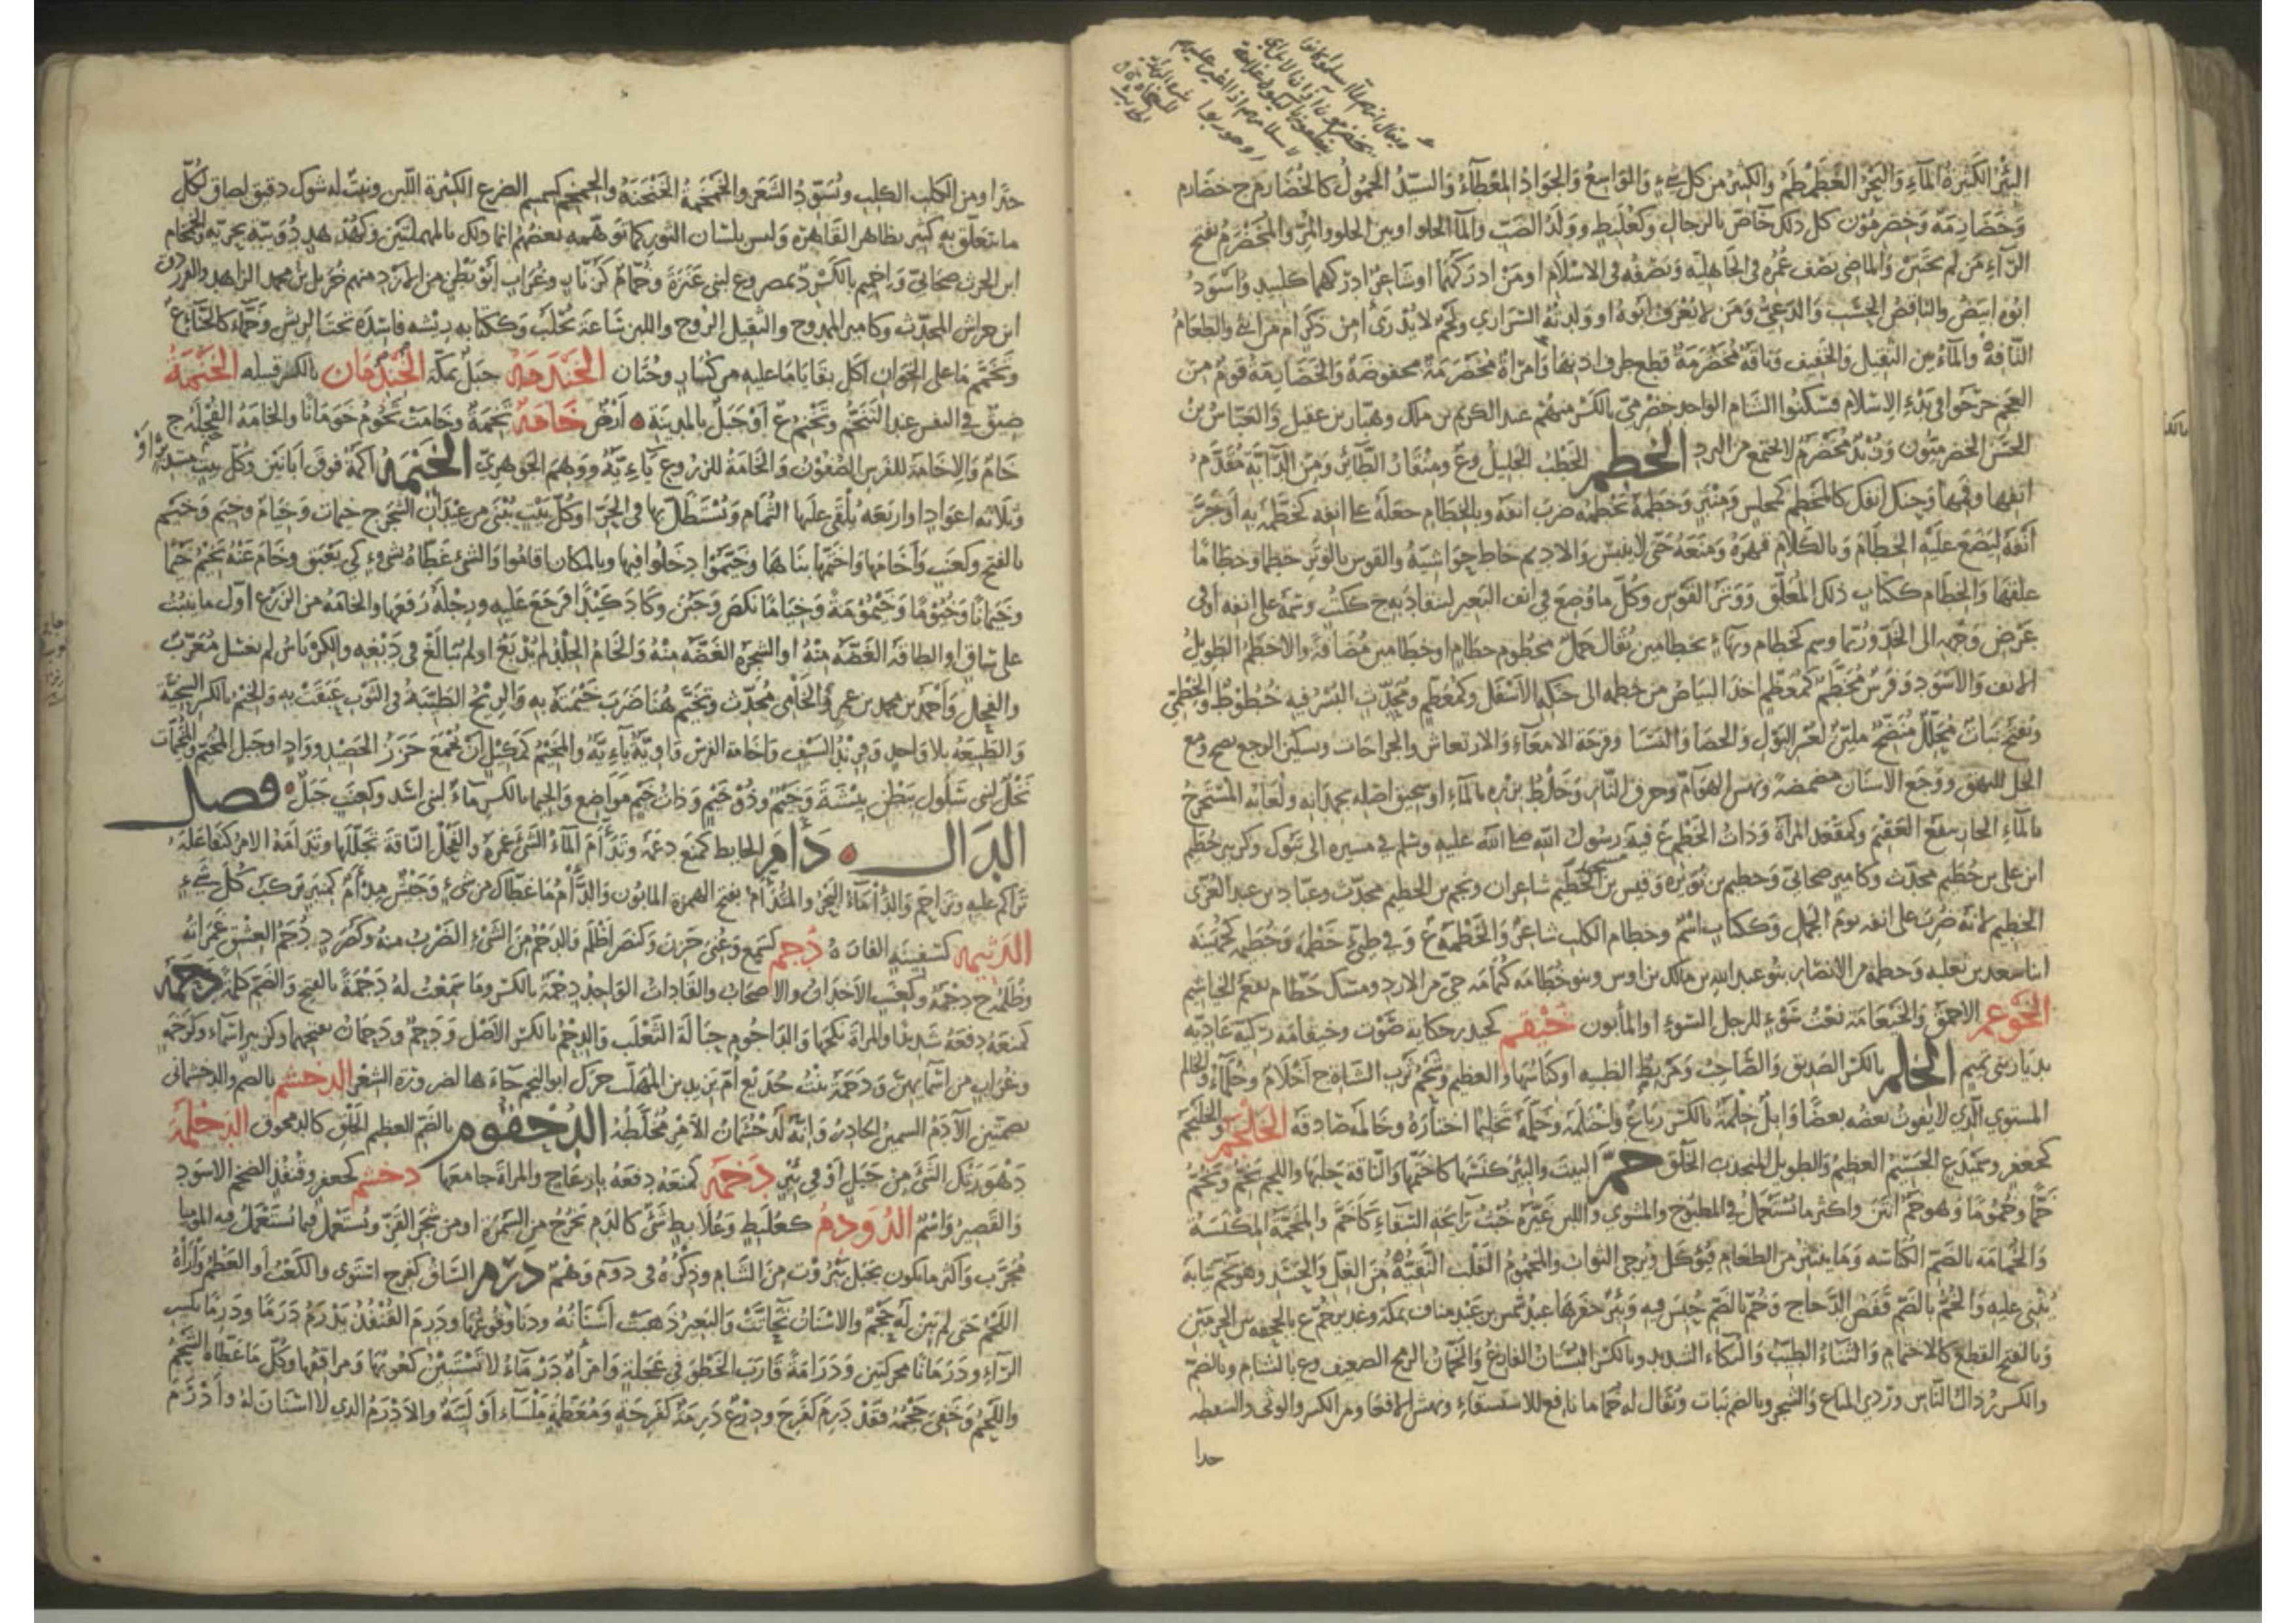 البئر الكثيرة الماء والبحر الغطمطم والكثير من كل شيء والواسع والجواد المعطاء والسيد الحمول كالخضارم ج خضارم
وخضارمة وخضرمون كل ذلك خاص بالرجال وكعلبط وولد الضب والماء الحلو او بين الحلو والمر والمخضرم بفتح
الراء من لم يختتن والماضي نصف عمره في الجاهلية ونصفه في الاسلام او من ادركهما او شاعر ادركهما كلبيد واسود
ابوه ابيض والناقص الحسب والدعي ومن لا يعرف ابوه او ولدته السراري ولحم لا يدرى امن ذكر ام من انثى والطعام
التافه والماء بين الثقيل والخفيف وناقة مخضرمة قطع طرف اذنها وامراة مخضرمة مخفوضة والخضارمة قوم من
العجم خرجوا في بدء الاسلام فسكنوا الشام الواحد خضرمي بالكسر منهم عبد الكريم بن ملك وهبار بن عقيل والعباس بن
الحسن الخضرميون وزبد مخضرم لا يجتمع من البرد الخطم الخطب الجليل وع ومنقار الطائر ومن الدابة مقدم
انفها وفمها ومنك انفك كالمخطم كمجلس ومنبر وخطمه يخطمه ضرب انفه وبالخطام جعله على انفه كخطمه به او جر
انفه ليضع عليه الخطام وبالكلام قهره ومنعه حتى لا ينبس والاديم خاط حواشيه والقوس بالوتر خطما وخطاما
علقها والخطام ككتاب ذلك المعلق ووتر القوس وكل ما وضع في انف البعير ليقتاد به ج ككتب وسمة على انفه او في
عرض وجهه الى الخد وربما وسم بخطام وربما بخطامين يقال جمل مخطوم خطام او خطامين مضافة والاخطم الطويل
الانف والاسود وفرس مخطم كمعظم اخذ البياض من خطمه الى حنكه الاسفل وكمعظم ومحدث البسر فيه خطوط والخطمي
ويفتح نبات محلل منضج ملين لعسر البول والحصا والنسا وقرحة الامعاء والارتعاش والجراحات وتسكين الوجع ومع
الخل للبهق ووجع الاسنان مضمضة ونهش الهوام وحرق النار وخلط بزره بالماء او سحيق اصله يجمدانه ولعابه المستخرج
بالماء الحار ينفع العقيم وكمقعد المرأة وذات الخطمي ع فيه مسجد رسول الله صلى الله عليه وسلم في مسيره الى تبوك وكزبير خطيم
ابن علي بن خطيم محدث وكامير صحابي وخطيم بن نويرة وقيس بن الخطيم شاعران ونجم بن الخطيم محدث وعباد بن عبد العزى
الخطيم لانه ضرب على انفه يوم الجمل وككتاب اسم وخطام الكلب شاعر والخطمة ع وفي طيئ خطمة وخطيمة كجهينة
ابنا سعد بن ثعلبة وخطمة من الانصار بنو عبد الله بن مالك بن اوس وبنو خطامة كثمامة حي من الازد ومسك خطام يفعم الخياشيم
الخوعم الاحمق والخيعامة نعت سوء للرجل السوء او المأبون خيقم كحيدر حكاية صوت وخيقمانة ركية عادية
بديار بني تميم الخلم بالكسر الصديق والصاحب ومربض الظبية او كناسها والعظيم وشحم ثرب الشاة ج اخلام وخلماء والخلم
المستوي الذي لا يفوت بعضه بعضا وابل خلمة بالكسر رتاع واختلمه وخلمه تخليما اختاره وخالمه صادقه الخلجم والخليجم
كجعفر وسميدع الجسيم العظيم والطويل المنجذب الخلق خم البيت والبئر كنسها كاختمها والناقة حلبها واللحم يخم ويخم
خما وخموما وهو خم انتن واكثر ما يستعمل في المطبوخ والمشوي واللبن غيره خبث رائحة السقاء كاخم والمخمة المكنسة
والخمامة بالضم الكناسة وما ينتثر من الطعام فيؤكل ويرجى الثواب والمخموم القلب النقيه من الغل والحسد وهو يخم ثيابه
يثنى عليه والخم بالضم قفص الدجاج وخم بالضم حبس فيه وبئر حفرها عبد شمس بن عبد مناف بمكة وغدير خم ع بالجحفة بين الحرمين
وبالفتح القطع كالاختمام والثناء الطيب والبكاء الشديد وبالكسر البستان الفارغ والخمان الرمح الضعيف وع بالشام وبالضم
والكسر رذال الناس وردي المتاع والشجر وبالضم نبات ويقال له خاماما نافع للاستسقاء ونهش الافعى ومن الكسر والوثى والسقطة
جدا
جدا ومن الكلب الكلب ويسود الشعر والخمخمة الخنخنة والخمخم كسمسم الضرع الكثيرة اللبن ونبت له شوك دقيق لصاق بكل
ما يتعلق به كثير بظاهر القاهرة وليس بلسان الثور كما توهمه بعضهم انما ذلك بالمهملتين وكهدهد دويبة بحرية والخمخام
ابن الحرث صحابي واخميم بالكسر د بمصر وع لبني عنزة وخمام كزنار وغراب ابو بطن من الازد منهم خربيل بن محمد الزاهد والفرزدق
ابن جواس المحدثه وكامير الممدوح والثقيل الروح واللبن ساعة يحلب وككتابة ريشة فاسدة تحت الريش وخماء كالحناء ع
وتخمم ما على الخوان اكل بقايا ما عليه من كسار وختات الخندمة جبل بمكة الخندمان بالكسر قبيلة الخنمة
ضيق في النفس عند التنخم وتخنم ع او جبل بالمدينة ه ارض خامة تخمة وخامت تخوم خومانا والخامة الفجلة ج
خام والاخامة للفرس الصفون والخامة للزرع ياءية ووهم الجوهري الخيمة اكمة فوق ابانين وكل بيت مستدير او
وثلاثة اعواد او اربعة يلقى عليها الثمام ويستظل بها في الحر او كل بيت يبنى من عيدان الشجر ج خيمات وخيام وخيم وخيم
بالفتح وكعنب واخامها واخيمها بناها وخيموا دخلوا فيها وبالمكان اقاموا والشيء غطاه بشيء كي يعبق وخام عنه يخيم خيما
وخيمانا وخيوما وخيمومة وخياما نكص وجبن وكاد كيدا فرجع عليه ورجله رفعها والخامة من الزرع اول ما ينبت
على ساق او الطاقة الغضة منه او الشجرة الغضة منه والخام الجلد لم يدبغ او لم يبالغ في دبغه والكرباس لم يغسل معرب
والفجل واحمد بن محمد بن عمر والخامي محدث وتخيم هنا ضرب خيمته به والريح الطيبة في الثوب عبقت به والخيم بالكسر السجية
والطبيعة بلا واحد وفرند السيف واخامة الفرس واوية ياءية والمخيم كمكيل ان تجمع جرز الحصيد وواد او جبل المخيم والمخيمات
نخل لبني سلول ببطن بيشة وخيم وذو خيم وذات خيم مواضع والخيما بالكسر ماء لبني اسد وكعنب جبل ه فصل
الدال ه دأم الحايط كمنع دعمه وتدأم الماء الشيء غمره والفحل الناقة تجللها وتداءمه الامر كتفاعله
تراكم عليه وتزاحم والدأماء البحر والمتدأم بفتح الهمزة المابون والدأم ما غطاك من شيء وجيش مدأم كمنبر يركب كل شيء
الدثيمة كسفينة الفارة دجم كسمع وعني حزن وكنصر اظلم والدجم من الشيء الضرب منه وكصرد دجم العشق غمراته
وظلمه ج دجمة وكعنب الاخدان والاصحاب والعادات الواحد دجمة بالكسر وما سمعت له دجمة بالفتح والضم كلمة دحمه
كمنعه دفعه شديدا والمراة نكحها والداحوم حبالة الثعلب والدحم بالكسر الاصل ودحيم ودحمان بفتحهما وكزبير اسماء وكرحمة
وغراب من اسمايهن ودحمة بنت جديع ام يزيد بن المهلب حرك ابو النجم حاءها لضرورة الشعر الدحشم بالضم والدحشماني
بضمتين الآدم السمين الحادر وانه لدحشمان الامر مخلطه الدحقوم بالضم العظيم الخلق كالدمحوق الدحلمة
دهورتك الشيء من جبل او في بئر دخمه كمنعه دفعه بازعاج والمراة جامعها دخشم كجعفر وقنفذ الضخم الاسود
والقصير واسم الدودم كعلبط وعلابط شيء كالدم يخرج من السمرة او من شجر الغز ويستعمل فيما يستعمل فيه الموميا
مجرب واكثر ما يكون بجبل بيروت من الشام وذكره في دوم وهم درم الساق كفرح استوى والكعب او العظم واراه
اللحم حتى لم يبن له حجم والاسنان تحاتت والبعير ذهبت اسنانه ودنا وقوعها ودرم القنفذ يدرم درما ودرما بكسر
الراء ودرمانا محركتين ودرامة قارب الخطو في عجلة وامراة درماء لا تستبين كعوبها ومرافقها وكل ما غطاه الشحم
واللحم وخفي حجمه فقد درم كفرح ودرع درمة كفرحة ومعظمة ملساء او لينة والادرم الذي لا اسنان له وادرم